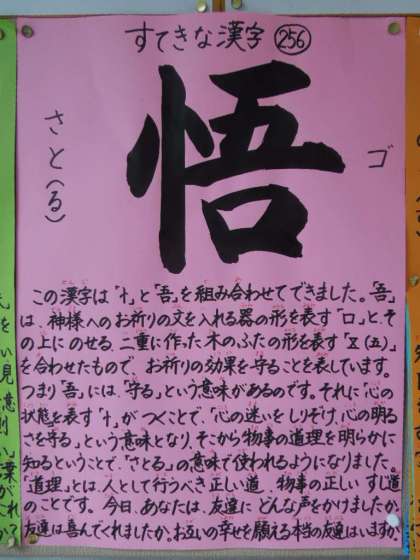 すてきな漢字 256
悟
ゴ
さと(る)
この漢字は「忄」と「吾」を組み合わせてできました。「吾」
は、神様へのお祈りの文を入れる器の形を表す「口」と、そ
の上にのせる、二重に作った木のふたの形を表す「㐅(五)」
を合わせたもので、お祈りの効果を守ることを表しています。
つまり「吾」には、「守る」という意味があるのです。それに「心の
状態」を表す「忄」がつくことで、「心の迷いをしりぞけ、心の明る
さを守る」という意味となり、そこから物事の道理を明らかに
知るということで、「さとる」の意味で使われるようになりました。
「道理」とは、人として行うべき正しい道、物事の正しいすじ道
のことです。今日、あなたは、友達にどんな声をかけましたか。
友達は喜んでくれましたか。お互いの幸せを願える本当の友達はいますか。